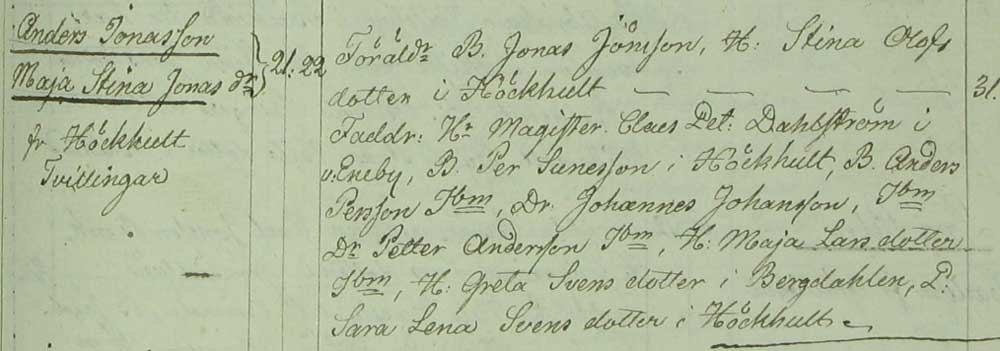 Anders Jonasson
Maja Stina Jonas dr
fr Höckhult
Tvillingar
21. 22
Föräldr B. Jonas Jönsson, H: Stina Olofs
dotter i Höckhult — — — — 31.
Faddr: Hr Magister Claes Pet: Dahlström i
v: Eneby, B. Per Sunesson i Höckhult, B. Anders
Persson Ibm, Dr. Johannes Johansson, Ibm
Dr Petter Andersson Ibm, H: Maja Lars dotter
Ibm, H: Greta Svens dotter i Bergdahlen, P:
Sara Lena Svens dotter i Höckhult